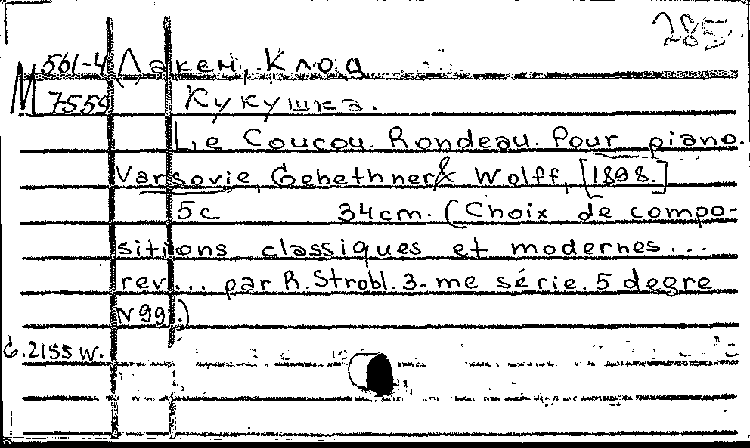 285
561-4 Дакен, Клод
М 7559 Кукушка.
Le Coucou. Rondeau. Pour piano.
Varsovie, Gebethner & Wolff, [1898.]
5c 34cm. (Choix de compo-
sitions classiques et modernes...
rev... par R. Strobl. 3-me série. 5 degre
N 99.)
G.2155 W.